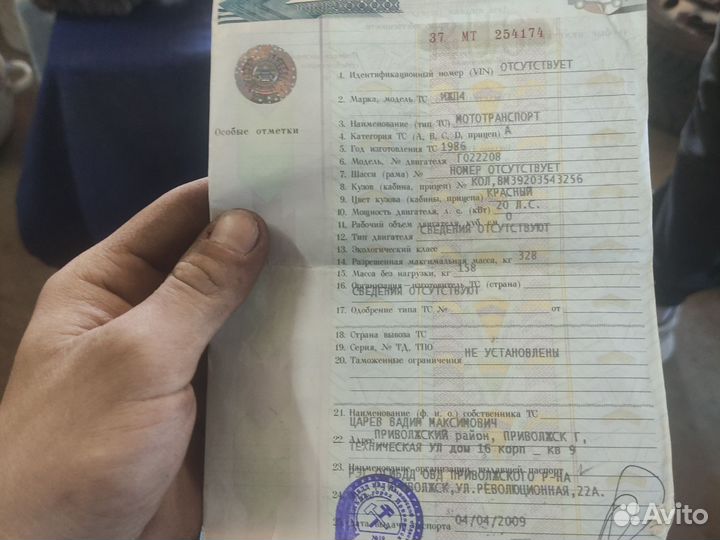 37 МТ 254174
1. Идентификационный номер (VIN) ОТСУТСТВУЕТ
2. Марка, модель ТС ИЖП4
3. Наименование (тип ТС) МОТОТРАНСПОРТ
Особые отметки
4. Категория ТС (A, B, C, D, прицеп) А
5. Год изготовления ТС 1986
6. Модель, № двигателя Г022208
7. Шасси (рама) № НОМЕР ОТСУТСТВУЕТ
8. Кузов (кабина, прицеп) № КОЛ,ВМ39203543256
9. Цвет кузова (кабины, прицепа) КРАСНЫЙ
10. Мощность двигателя, л. с. (кВт) 20 Л.С.
11. Рабочий объем двигателя, куб. см 0
12. Тип двигателя СВЕДЕНИЯ ОТСУТСТВУЮТ
13. Экологический класс
14. Разрешенная максимальная масса, кг 328
15. Масса без нагрузки, кг 158
16. Организация - изготовитель ТС (страна)
СВЕДЕНИЯ ОТСУТСТВУЮТ
17. Одобрение типа ТС № от
18. Страна вывоза ТС
19. Серия, № ТД, ТПО
20. Таможенные ограничения НЕ УСТАНОВЛЕНЫ
21. Наименование (ф. и. о.) собственника ТС
ЦАРЕВ ВАДИМ МАКСИМОВИЧ
22. Адрес ПРИВОЛЖСКИЙ район, ПРИВОЛЖСК Г,
ТЕХНИЧЕСКАЯ УЛ дом 16 корп _ кв 9
23. Наименование организации, выдавшей паспорт
РЭГ ОГИБДД ОВД ПРИВОЛЖСКОГО Р-НА
24. ПРИВОЛЖСК,УЛ.РЕВОЛЮЦИОННАЯ,22А.
25. Дата выдачи паспорта 04/04/2009
Avito